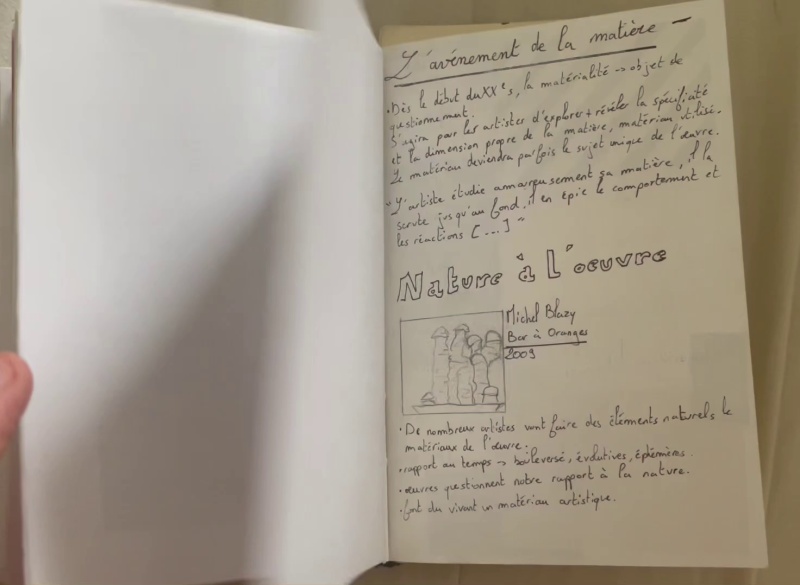 L'avénement de la matière -
• Dès le début du XXe s, la matérialité → objet de
questionnement.
S'agira pour les artistes d'explorer + révéler la spécificité
et la dimension propre de la matière, matériau utilisé.
Le matériau deviendra parfois le sujet unique de l'œuvre.
" L'artiste étudie amoureusement sa matière, il la
scrute jusqu'au fond, il en épie le comportement et
les réactions [...] "
Nature à L'oeuvre
Michel Blazy
Bar à Oranges
2009
• De nombreux artistes vont faire des éléments naturels le
matériaux de l'œuvre.
• rapport au temps → bouleversé, évolutives, éphémères.
• œuvres questionnent notre rapport à la nature.
• font du vivant un matériau artistique.